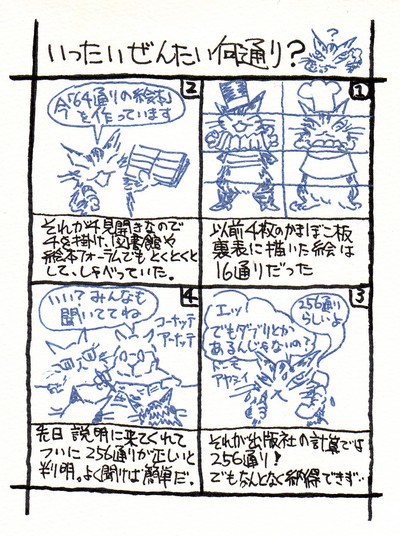 いったいぜんたい何通り?
?
1
以前4枚のかまぼこ板
裏表に描いた絵は
16通りだった
2
今「64通りの絵本」
を作っています
それが4見開きなので
4を掛け、図書館や
絵本フォーラムでもとくとくと
して、しゃべっていた。
3
256通り
らしいよ
エッ!
でもダブリとか
あるんじゃないの?
ドーモ
アヤシイ
それが出版社の計算では
256通り!
でもなんとなく納得できず‥
4
いいで みんなも
聞いててね
コーナッテ
アーナッテ
先日 説明に来てくれて
ついに 256通りが正しいと
判明。よく聞けば簡単だ。